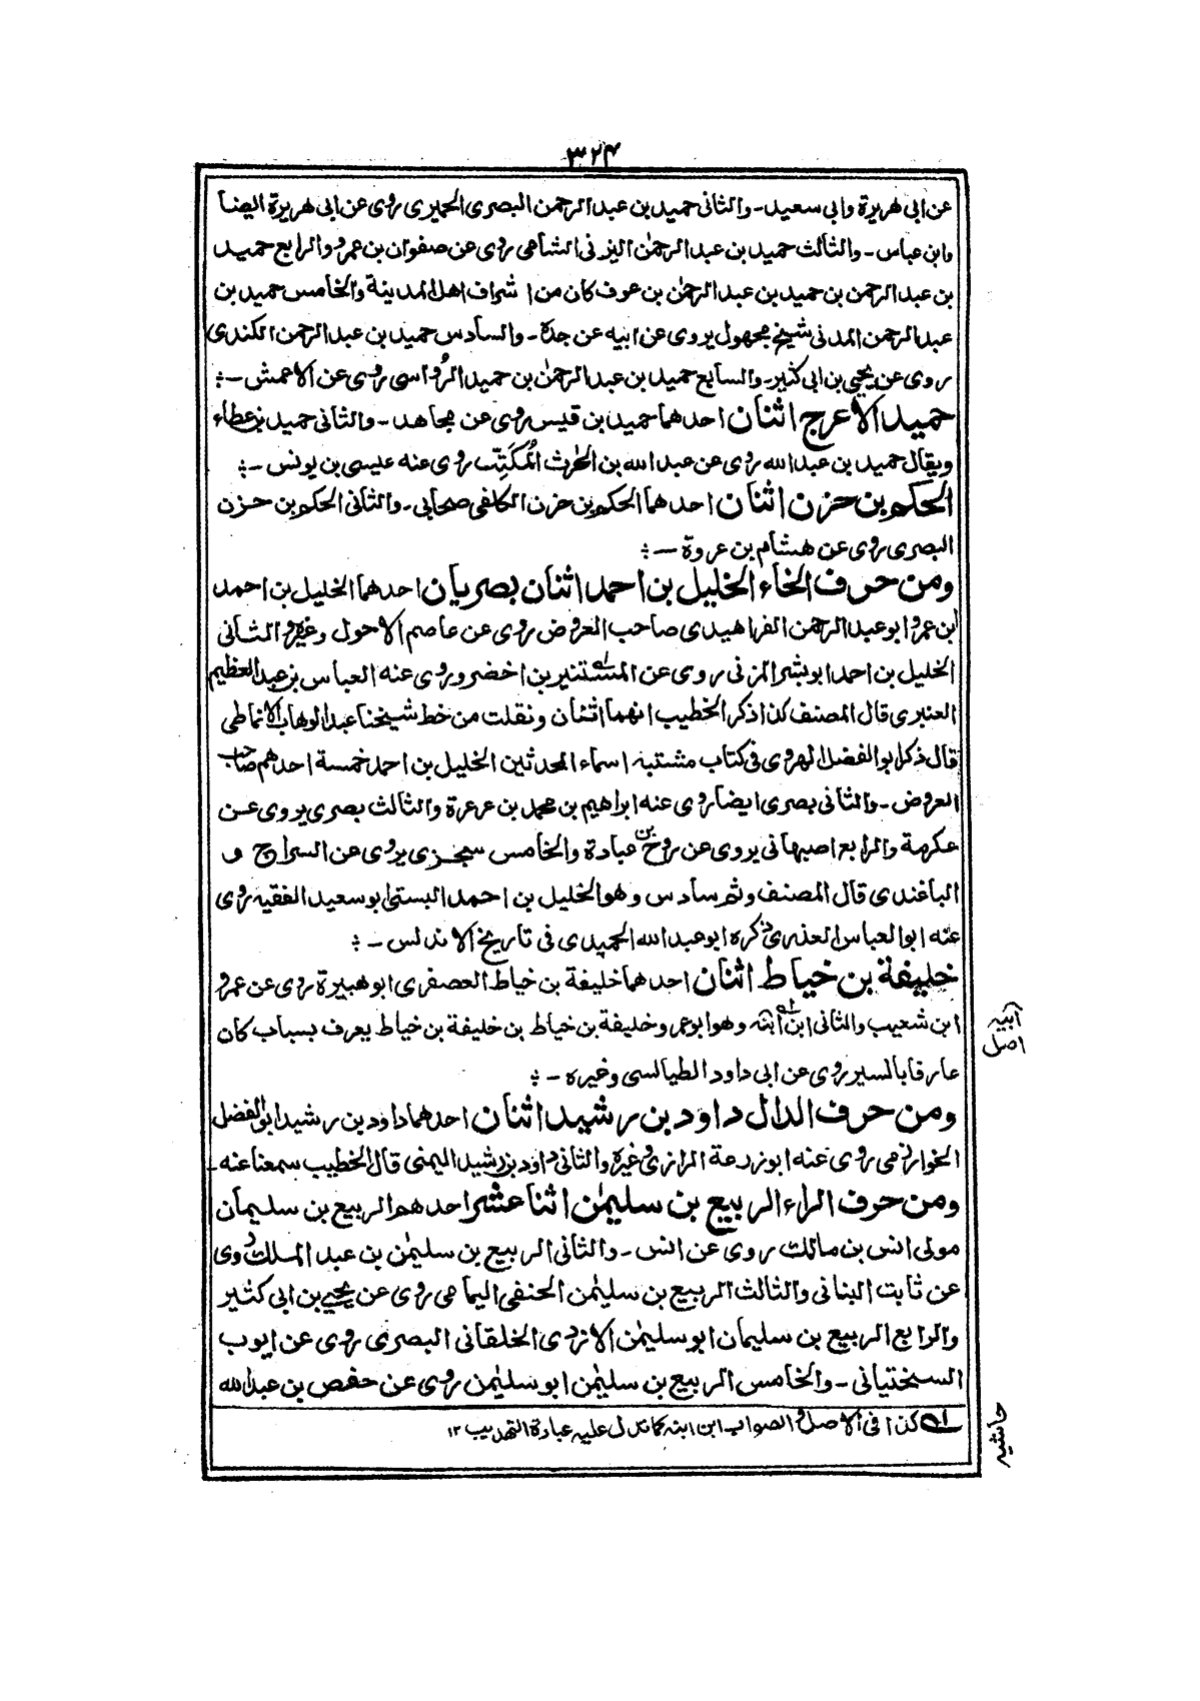 ۳۲۴
عن ابی هریرة وابی سعید۔ والثانی حمید بن عبد الرحمن البصری الحمیری روی عن ابی هریرة ایضاً
وابن عباس۔ والثالث حمید بن عبد الرحمٰن الیزنی الشامی روی عن صفوان بن عمرو والرابع حمید
بن عبد الرحمن بن حمید بن عبد الرحمٰن بن عوف کان من اشراف اهل المدینة والخامس حمید بن
عبد الرحمن المدنی شیخ مجهول یروی عن ابیه عن جده۔ والسادس حمید بن عبد الرحمن الکندی
روی عن یحیی بن ابی کثیر۔ والسابع حمید بن عبد الرحمٰن بن حمید الرُواسی روی عن الاعمش۔
حمید الاعرج اثنان احدهما حمید بن قیس روی عن مجاهد۔ والثانی حمید بن عطاء
ویقال حمید بن عبد الله روی عن عبد الله بن الحٰرث المُکَتِّب روی عنه عیسی بن یونس۔
الحکم بن حزن اثنان احدهما الحکم بن حزن الکلفی صحابی۔ والثانی الحکم بن حزن
البصری روی عن هشام بن عروة۔
ومن حرف الخاء الخلیل بن احمد اثنان بصریان احدهما الخلیل بن احمد
ابن عمرو ابو عبد الرحمن الفراهیدی صاحب العروض روی عن عاصم الاحول وغیره والثانی
الخلیل بن احمد ابو بشر المزنی روی عن المستنیر بن اخضر وروی عنه العباس بن عبد العظیم
العنبری قال المصنف کذا ذکر الخطیب انهما اثنان ونقلت من خط شیخنا عبد الوهاب الانماطی
قال ذکر ابو الفضل الهروی فی کتاب مشتبه اسماء المحدثین الخلیل بن احمد خمسة احدهم صاحب
العروض۔ والثانی بصری ایضا روی عنه ابراهیم بن محمد بن عرعرة والثالث بصری یروی عن
عکرمة والرابع اصبهانی یروی عن روح بن عبادة والخامس سجزی یروی عن السراج و
الباغندی قال المصنف وثم سادس وهو الخلیل بن احمد البستی ابو سعید الفقیه روی
عنه ابو العباس العذری ذکره ابو عبد الله الحمیدی فی تاریخ الاندلس۔
خلیفة بن خیاط اثنان احدهما خلیفة بن خیاط العصفری ابو هبیرة روی عن عمرو
ابن شعیب والثانی ابن ابنه وهو ابو عمر وخلیفة بن خیاط بن خلیفة بن خیاط یعرف بسباب کان
ابیه
اصل
عارفا بالسیر روی عن ابی داود الطیالسی وغیره۔
ومن حرف الدال داود بن رشید اثنان احدهما داود بن رشید ابو الفضل
الخوارزمی روی عنه ابو زرعة الرازی وغیره والثانی داود بن رشید الیمنی قال الخطیب سمعنا عنه۔
ومن حرف الراء الربیع بن سلیمٰن اثنا عشر احدهم الربیع بن سلیمان
مولی انس بن مالک روی عن انس۔ والثانی الربیع بن سلیمٰن بن عبد الملک روی
عن ثابت البنانی والثالث الربیع بن سلیمٰن الحنفی الیمامی روی عن یحیی بن ابی کثیر
والرابع الربیع بن سلیمان ابو سلیمٰن الازدی الخلقانی البصری روی عن ایوب
السختیانی۔ والخامس الربیع بن سلیمٰن ابو سلیمٰن روی عن حفص بن عبد الله
حاشیه
کذا فی الاصل والصواب ابن ابنه کما تدل علیه عبارة التهذیب ۱۲